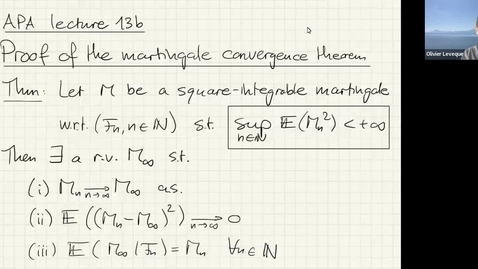 APA lecture 13b
Proof of the martingale convergence theorem
Thm: Let M be a square-integrable martingale
w.r.t. (Fn, n∈ℕ) s.t. sup n∈ℕ 𝔼(Mn²) < +∞
Then ∃ a r.v. M∞ s.t.
(i) Mn →n→∞ M∞ a.s.
(ii) 𝔼((Mn-M∞)²) →n→∞ 0
(iii) 𝔼(M∞|Fn) = Mn ∀n∈ℕ
Olivier Leveque